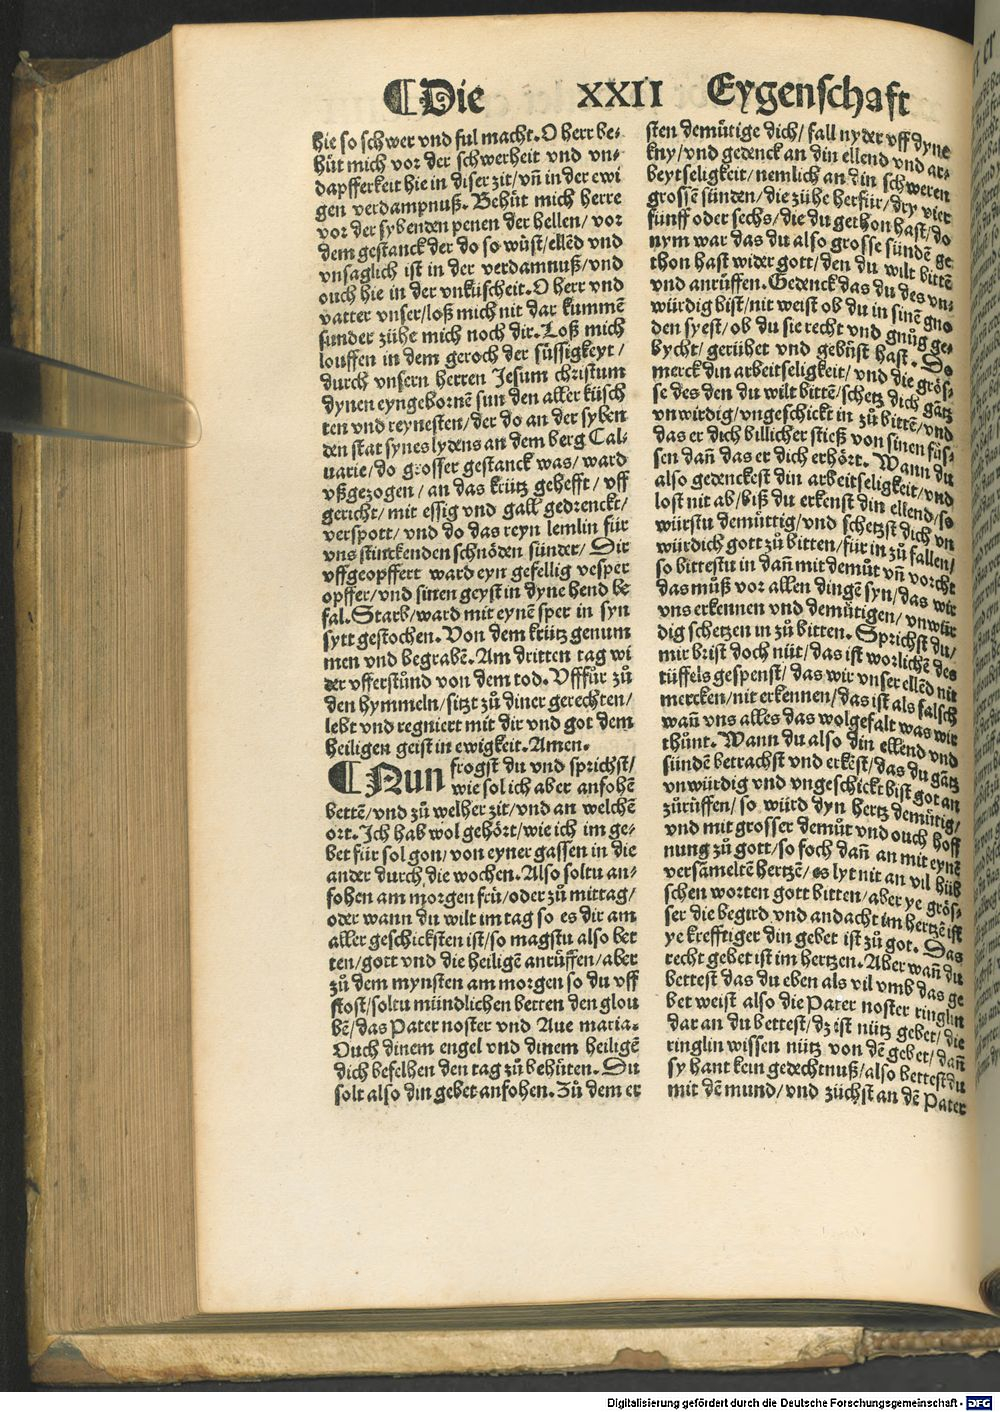 ¶Die XXII Eygenschaft
hie so schwer vnd ful macht. O herr be-
hüt mich vor der schwerheit vnd vn-
dapfferkeit hie in diser zit/ vñ in der ewi
gen verdampnuß. Behüt mich herre
vor der sybenden penen der hellen/ vor
dem gestanck der do so wüst/ ellēd vnd
vnsaglich ist in der verdamnuß/ vnd
ouch hie in der vnküscheit. O herr vnd
vatter vnser/ loß mich nit dar kummē
sunder zühe mich noch dir. Loß mich
louffen in dem geroch der süssigkeyt/
durch vnsern herren Jesum christum
dynen eyngebornē sun den aller küsch
ten vnd reynesten/ der do an der syben
den stat synes lydens an dem berg Cal-
uarie/ do grosser gestanck was/ ward
vßgezogen/ an das krütz gehefft/ vff
gericht/ mit essig vnd gall gedrenckt/
verspott/ vnd do das reyn lemlin für
vns stinckenden schnöden sünder/ Dir
vffgeopffert ward eyn gefellig vesper
opffer/ vnd sinen geyst in dyne hend be
fal. Starb/ ward mit eynē sper in syn
sytt gestochen. Von dem krütz genum
men vnd begrabē. Am dritten tag wi
der vfferstůnd von dem tod. Vffůr zů
den hymmeln/ sitzt zů diner gerechten/
lebt vnd regniert mit dir vnd got dem
heiligen geist in ewigkeit. Amen.
¶Nun frogst du vnd sprichst/
wie sol ich aber anfohen
bettē/ vnd zů welher zit/ vnd an welchē
ort. Ich hab wol gehört/ wie ich im ge-
bet für sol gon/ von eyner gassen in die
ander durch die wochen. Also soltu an-
fohen am morgen frü/ oder zů mittag/
oder wann du wilt im tag so es dir am
aller geschicksten ist/ so magstu also bet
ten/ gott vnd die heiligē anrüffen/ aber
zů dem mynsten am morgen so du vff
stost/ soltu mündlichen betten den glou
bē/ das Pater noster vnd Aue maria.
Ouch dinem engel vnd dinem heiligē
dich befelhen den tag zů behüten. Du
solt also din gebet anfohen. Zů dem er
sten demütige dich/ fall nyder vff dyne
kny/ vnd gedenck an din ellend vnd ar-
beytseligkeit/ nemlich an din schweren
grossen sünden/ die zühe herfür/ dry vier
fünff oder sechs/ die du gethon hast/ do
nym war das du also grosse sündē ge
thon hast wider gott/ den du wilt bittē
vnd anrüffen. Gedenck das du des vn-
würdig bist/ nit weist ob du in sinē gno
den syest/ ob du sie recht vnd gnůg ge-
bycht/ gerühet vnd gebüst hast. Do
merck din arbeitseligkeit/ vnd die grös-
se des den du wilt bittē/ schetz dich gātz
vnwirdig/ vngeschickt in zů bittē/ vnd
das er dich billicher stieß von sinen füs-
sen dañ das er dich erhört. Wann du
also gedenckest din arbeitseligkeit/ vnd
lost nit ab/ biß du erkenst din ellend/ so
würstu demüttig/ vnd schetzst dich vn
würdich gott zů bitten/ für in zů fallen/
so bittestu in dañ mit demůt vñ vorcht
das můß vor allen dingē syn/ das wir
vns erkennen vnd demütigen/ vnwür
dig schetzen in zů bitten. Sprichst du/
mir brist doch nüt/ das ist worlichē des
tüffels gespenst/ das wir vnser ellēd nit
mercken/ nit erkennen/ das ist als falsch
wañ vns alles das wolgefalt was wir
thůnt. Wann du also din ellend vnd
sündē betrachst vnd erkēst/ das du gātz
vnwürdig vnd vngeschickt bist got an
zürüffen/ so würd dyn hertz demütig/
vnd mit grosser demůt vnd ouch hoff
nung zů gott/ so foch dañ an mit eynē
versameltē hertzē/ es lyt nit an vil hüb
schen worten gott bitten/ aber ye grös-
ser die begird vnd andacht im hertzē ist
ye krefftiger din gebet ist zů got. Das
recht gebet ist im hertzen. Aber wañ du
bettest das du eben als vil vmb das ge
bet weist also die Pater noster ringlin
dar an du bettest/ dz ist nütz gebet/ die
ringlin wissen nütz von dē gebet/ dañ
sy hant kein gedechtnuß/ also bettest du
mit dē mund/ vnd züchst an dē Pater
Digitalisierung gefördert durch die Deutsche Forschungsgemeinschaft - DFG